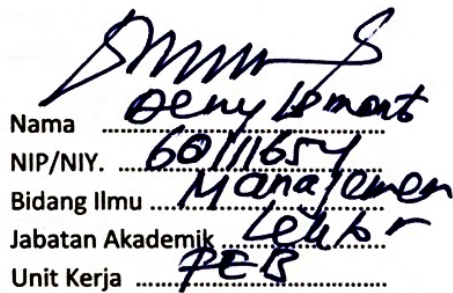 Nama Deny Ismant
NIP/NIY. 60111654
Bidang Ilmu Manajemen
Jabatan Akademik Lektor
Unit Kerja FEB